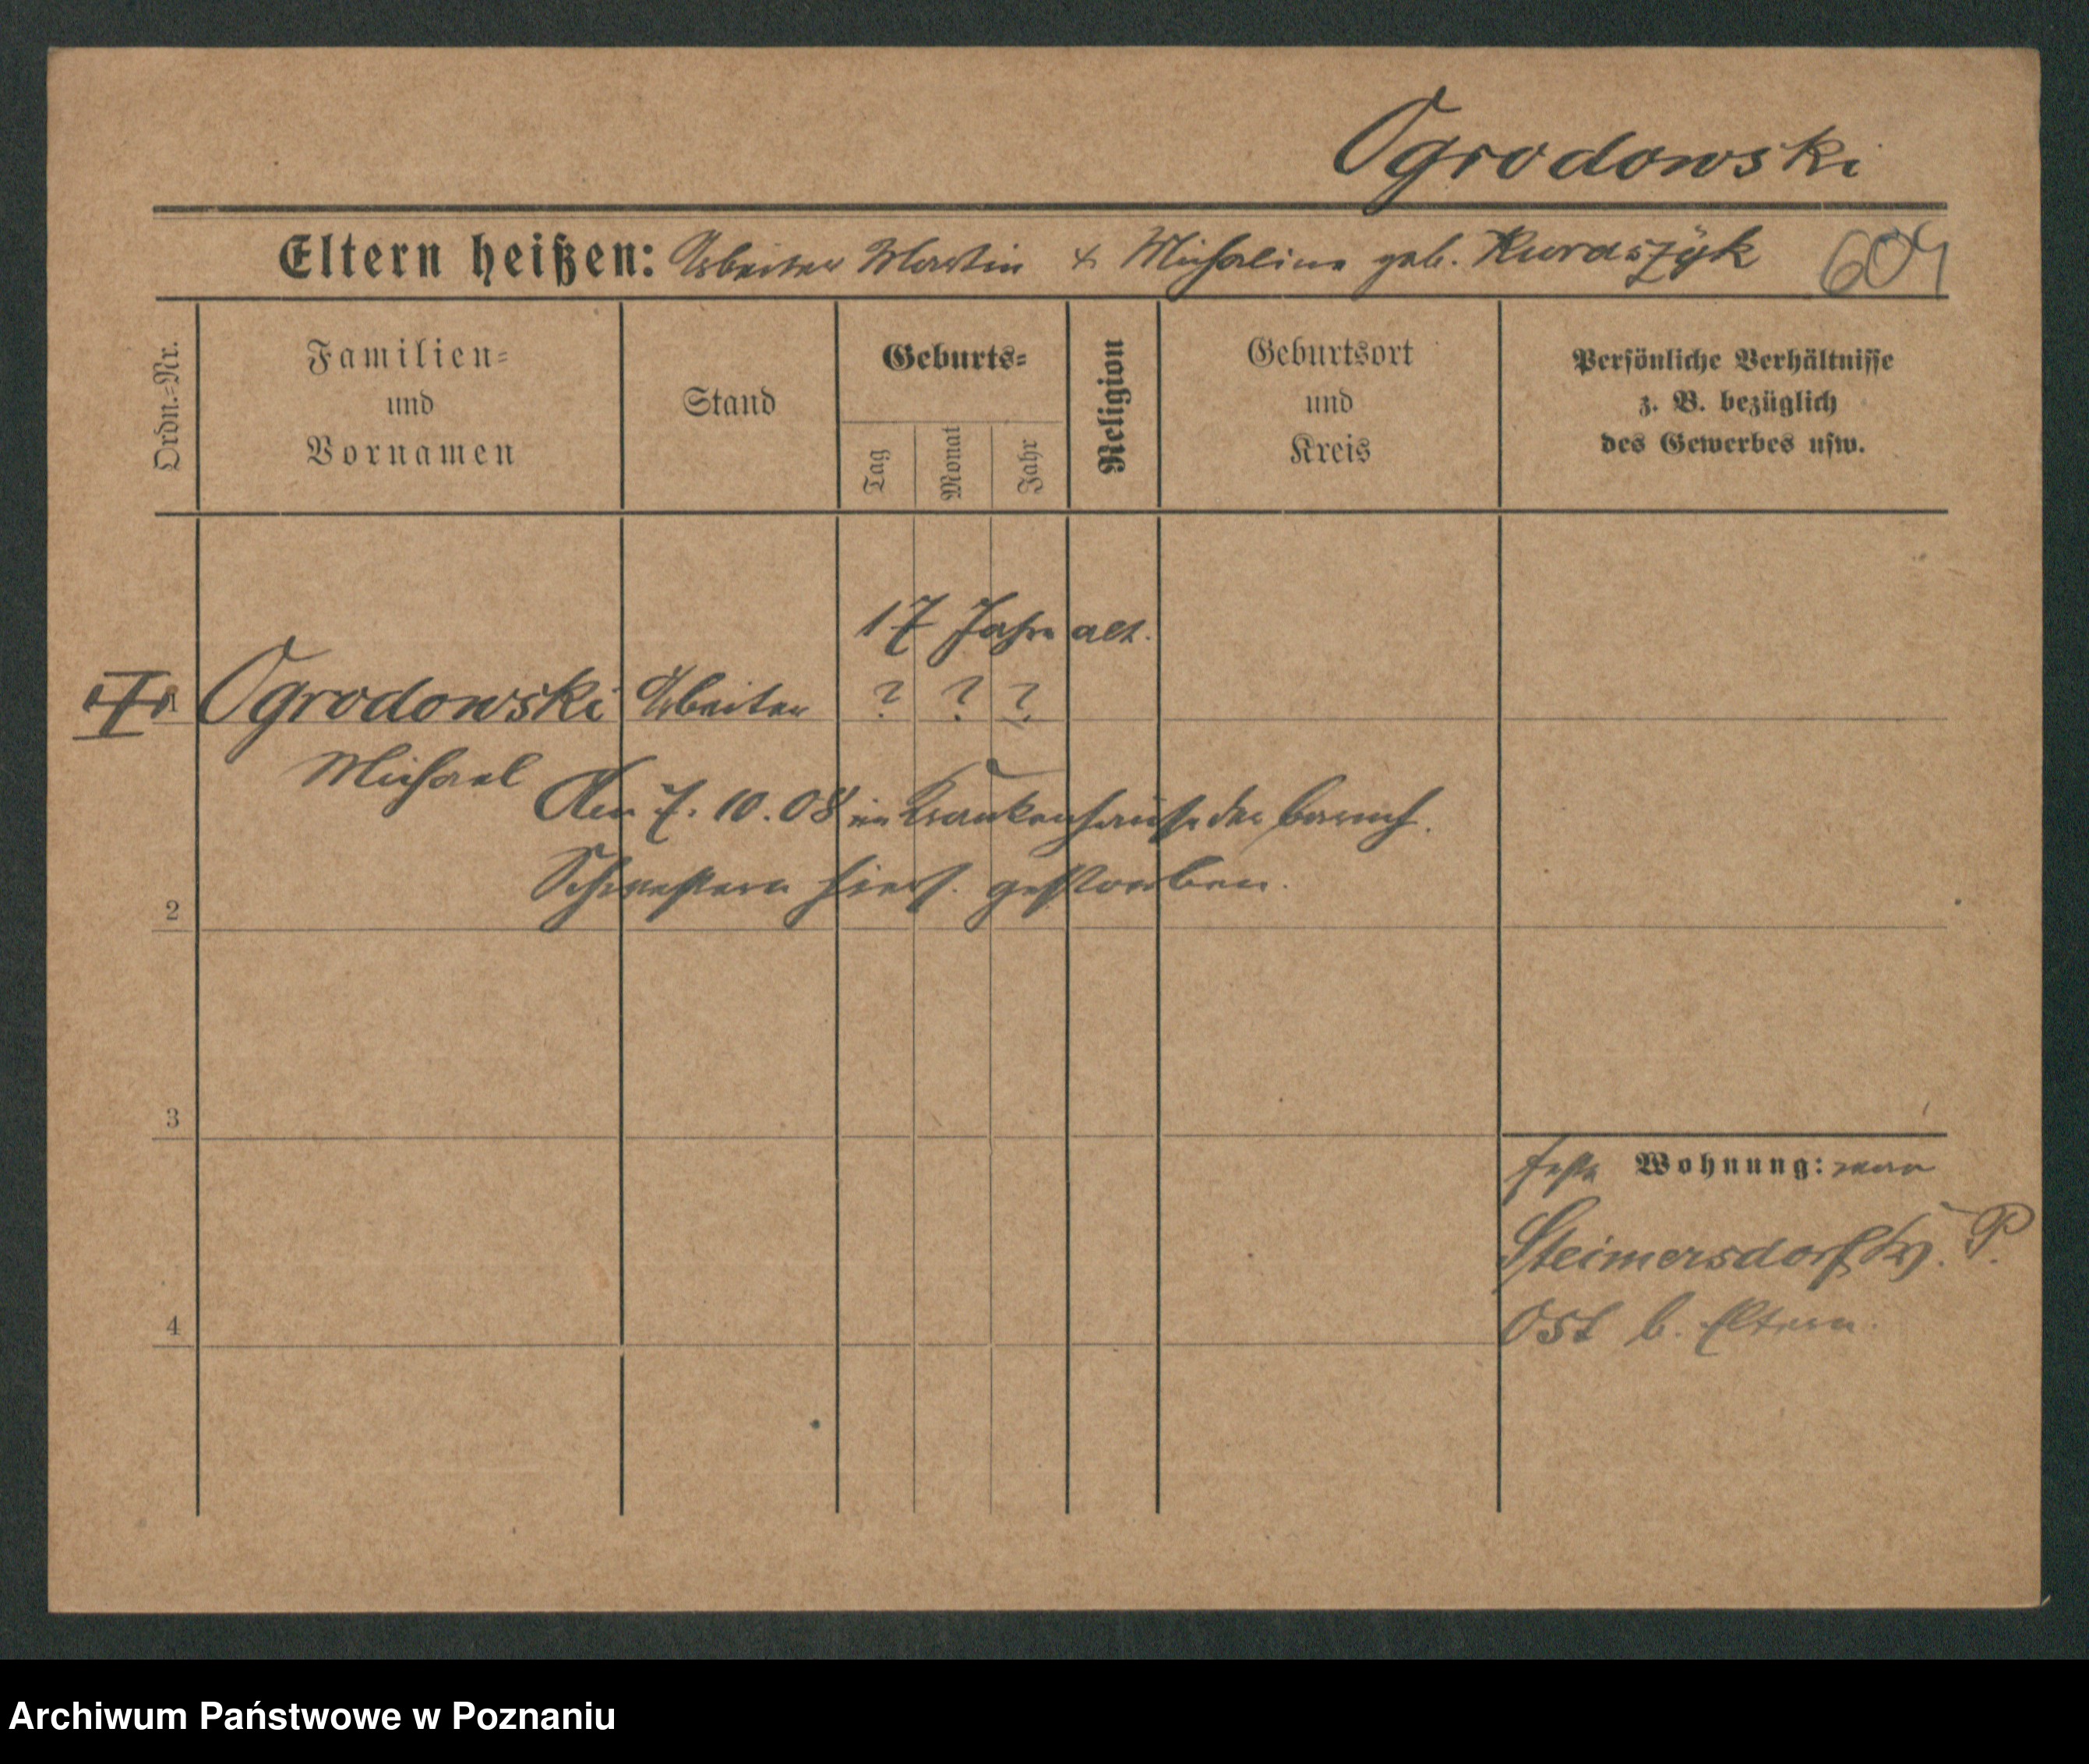 Ogrodowski
Eltern heißen: Arbeiter Martin + Michalina geb. Kuraszyk 604
Ordn.=Nr.
Familien=
und
Vornamen
Stand
Geburts=
Tag
Monat
Jahr
Religion
Geburtsort
und
Kreis
Persönliche Verhältnisse
z. B. bezüglich
des Gewerbes usw.
17 Jahre alt.
Ogrodowski Arbeiter ? ? ?
Michael
Am 7. 10. 08 im Krankenhause der barmh.
Schwestern hiers. gestorben.
2
3
feste Wohnung: war
Steimersdorf Kr. P.
Ost b. Eltern.
4
Archiwum Państwowe w Poznaniu